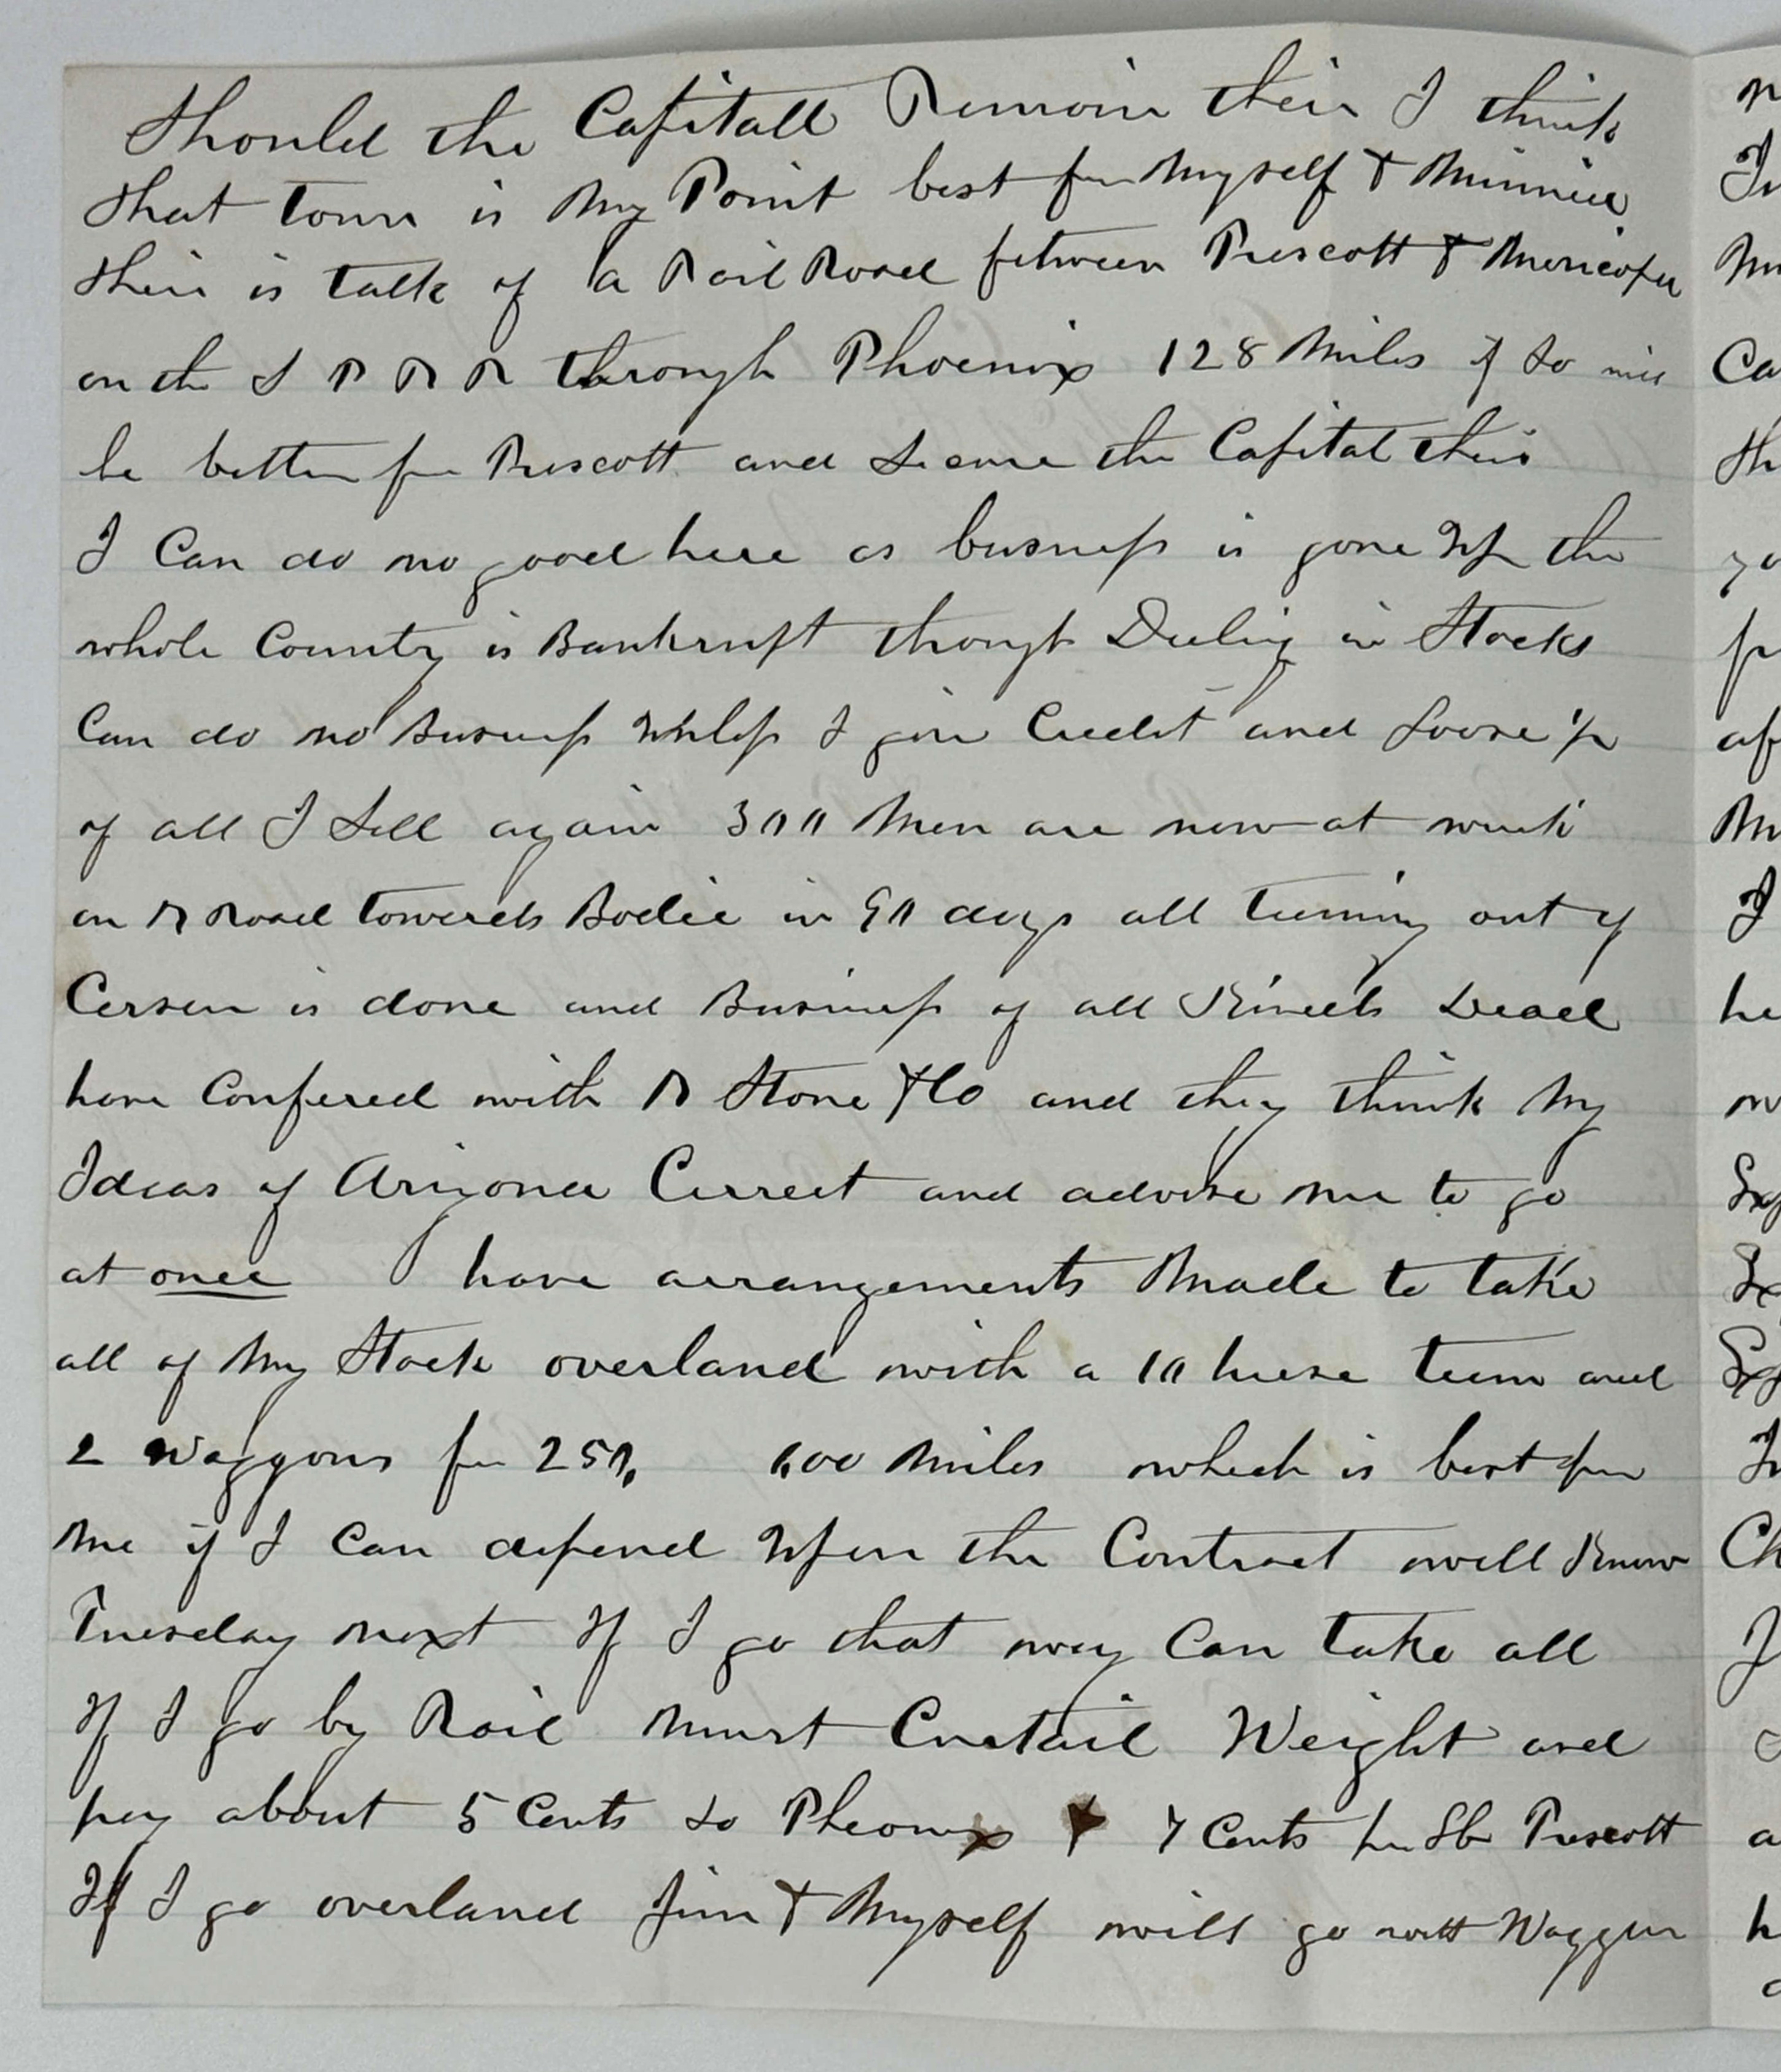 Should the Capitall Remain their I think
that town is My Point best for Myself & Minnie
their is talk of a Rail Road between Prescott & Maricopa
on the S P R R through Phoenix 128 Miles if so will
be better for Prescott and Secure the Capital their
I Can do no good here as busness is gone Up the
whole County is Bankrupt through Deeling in Stocks
Can do no Busness Unless I give Credit and Loose
of all I Sell again 300 Men are now at work
on R Road towards Bodie in 90 days all teeming out of
Carson is done and Business of all Kinds Dead
have Confered with R Stone & Co and they think My
Ideas of Arizona Correct and advise me to go
at once I have arrangements Made to take
all of My Stock overland with a 10 horse team and
2 Waggons for 250, 600 Miles which is best for
Me if I Can depend Upon the Contract will Know
Tuesday next If I go that way Can take all
If I go by Rail Must Curtail Weight and
pay about 5 Cents to Pheonix & 7 Cents per Lb Prescott
If I go overland Jim & Myself will go with Waggon